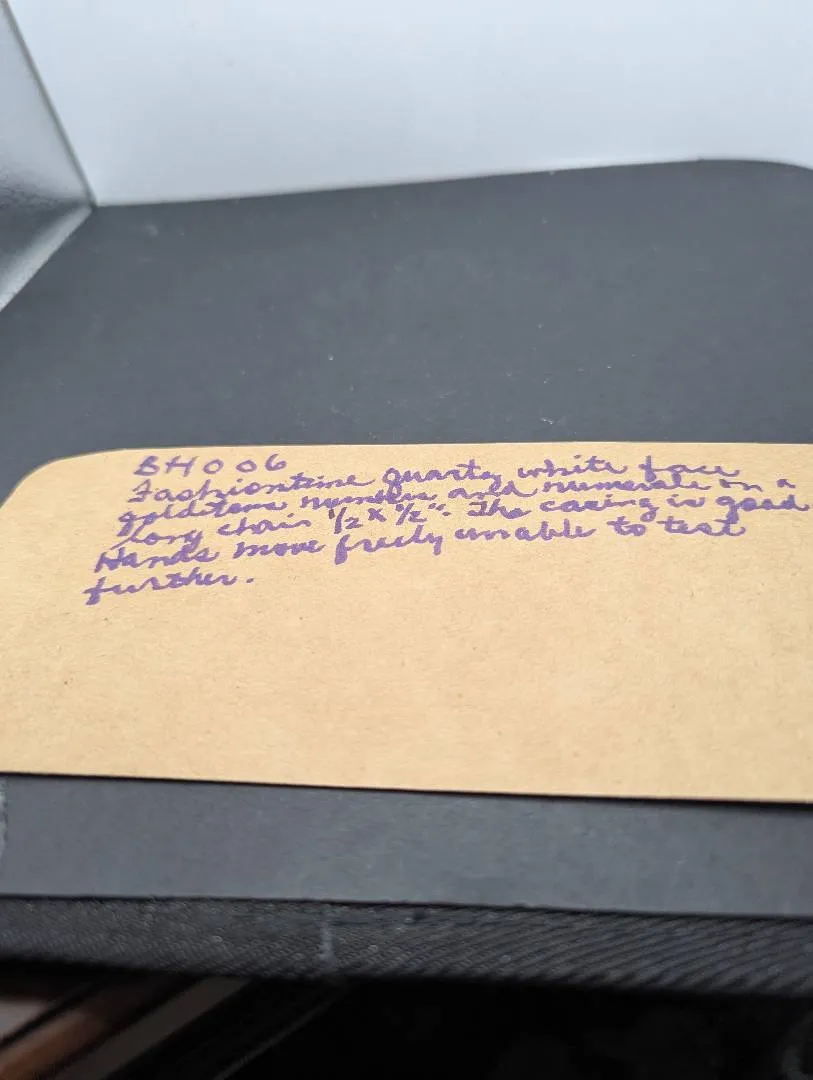 BH006
Fashiontime quartz white face
goldtone numbers and numerals on a
long chain 1/2 x 1/2". The casing is good
Hands move freely unable to test
further.